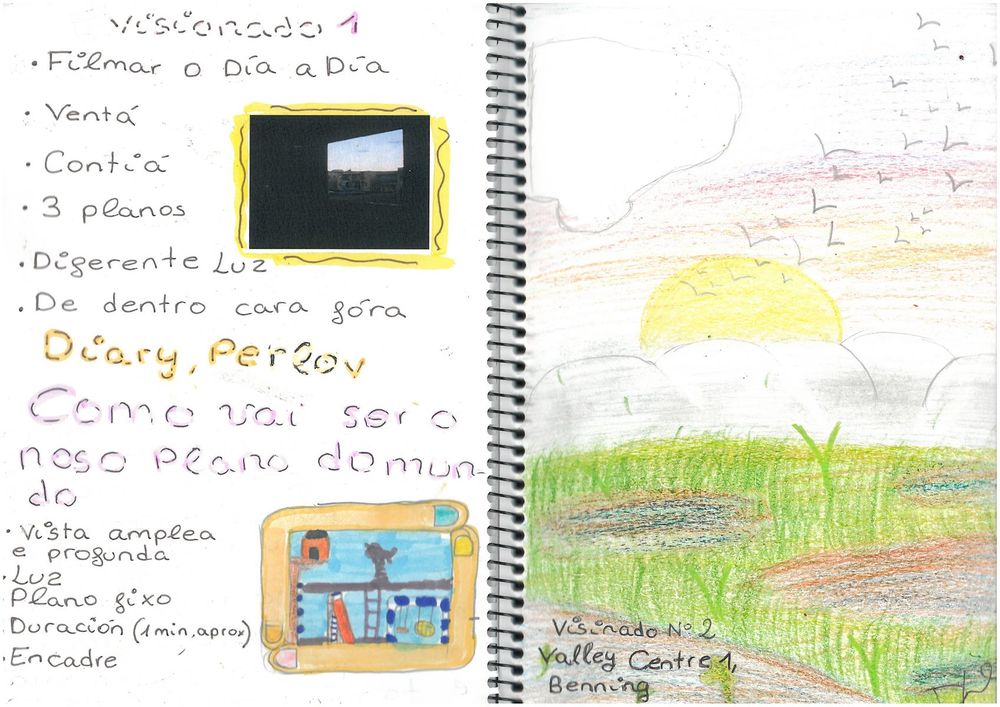 Visionado 1
• Filmar o Día a Día
• Ventá
• Contiá
• 3 planos
• Digerente Luz
• De dentro cara fóra
Diary, Perlov
Como vai ser o
noso plano do mun-
do
• Vista amplea
e profunda
• Luz
• Plano fixo
• Duración (1 min, aprox)
• Encadre
Visinado Nº 2
Valley Centre 1,
Benning